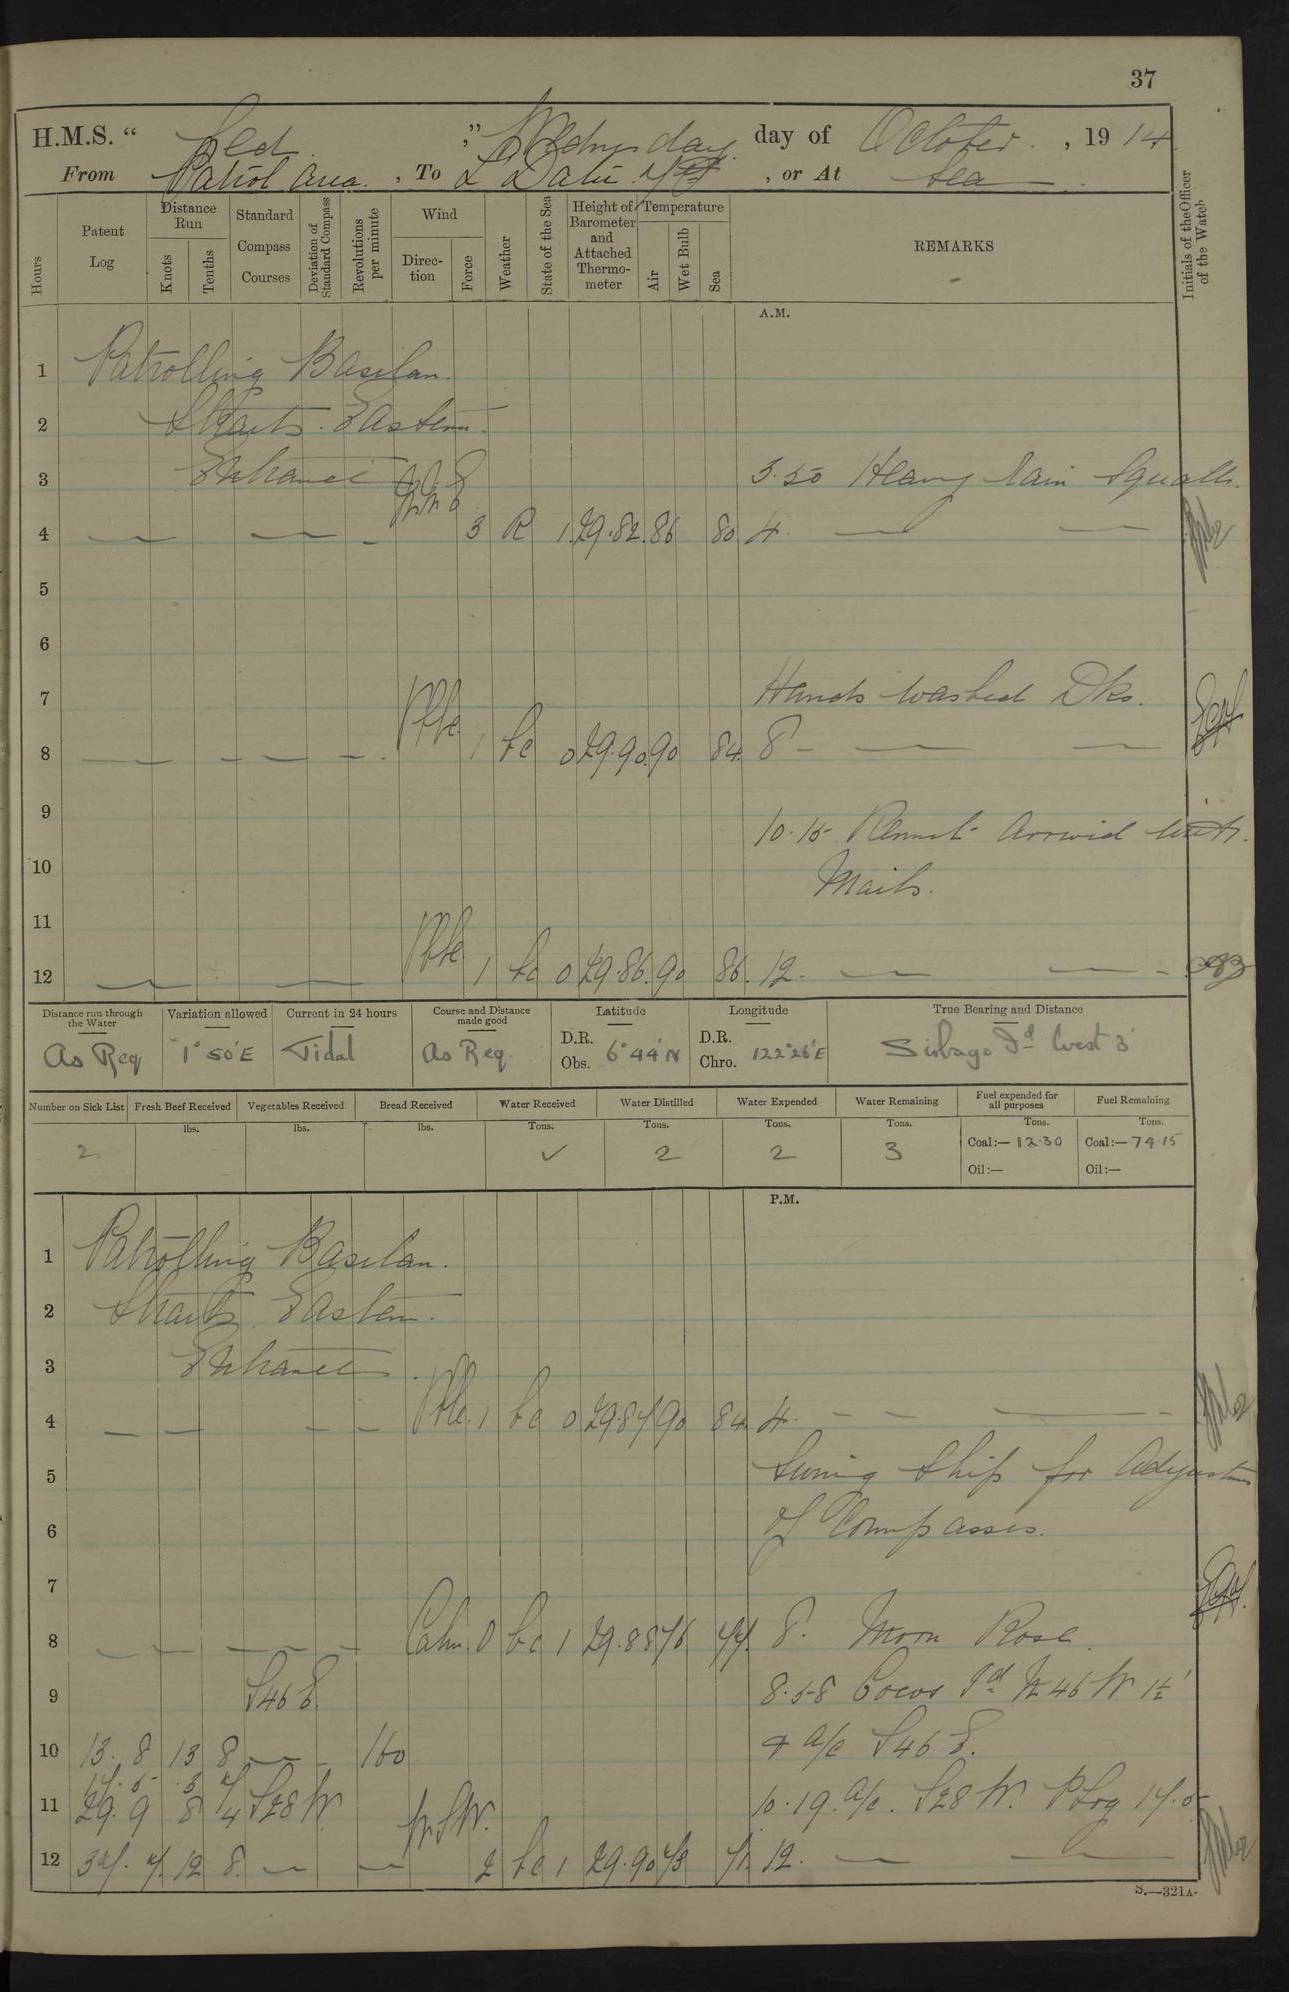 37
H.M.S. “ ” Wednesday day of October, 1914
From Patrol Area, To , or At Sea
Hours
Patent Log
Distance Run
Knots
Tenths
Standard Compass Courses
Deviation of Standard Compass
Revolutions per minute
Wind
Direction
Force
Weather
State of the Sea
Height of Barometer and Attached Thermometer
Temperature
Air
Wet Bulb
Sea
REMARKS
Initials of the Officer of the Watch
A.M.
1 Patrolling Basilan
2 Straits. Eastern
3 Entrance 3.50 Heavy rain Squalls.
4 3 R 1 29.82 86 80 4.
5
6
7 Hands washed Dks.
8 Vble. 1 bc 0 29.90 90 84 8
9
10.15 Kennet arrived with
10 Mails.
11
12 Vble. 1 bc 0 29.86 90 86 12.
Distance run through the Water
As Req
Variation allowed
1° 50' E
Current in 24 hours
Tidal
Course and Distance made good
As Req.
Latitude
D.R.
Obs. 6° 44' N
Longitude
D.R.
Chro. 122° 26' E
True Bearing and Distance
Sibago Id West 3'
Number on Sick List
2
Fresh Beef Received
lbs.
Vegetables Received
lbs.
Bread Received
lbs.
Water Received
Tons.
✓
Water Distilled
Tons.
2
Water Expended
Tons.
2
Water Remaining
Tons.
3
Fuel expended for all purposes
Tons.
Coal:— 12.30
Oil:—
Fuel Remaining
Tons.
Coal:— 74.15
Oil:—
P.M.
1 Patrolling Basilan.
2 Straits Eastern.
3 Entrance.
4 Vble. 1 bc 0 29.87 90 84 4.
5 Swing Ship for Adjustment
6 of Compasses.
7
8 Calm. 0 bc 1 29.88 76 77. 8. Moon Rose.
9 S46E. 8.58 Cocos Id N 46 W 1½'
10 13. 8 13 8 160 + a/c S46E.
17. 5 3 7
11 29. 9 8 4 S28W 10.19. a/c. S28W. P Log 17.5
W.S.W.
12 12 8. 2 bc 1 29.90 12.
S.—321A.